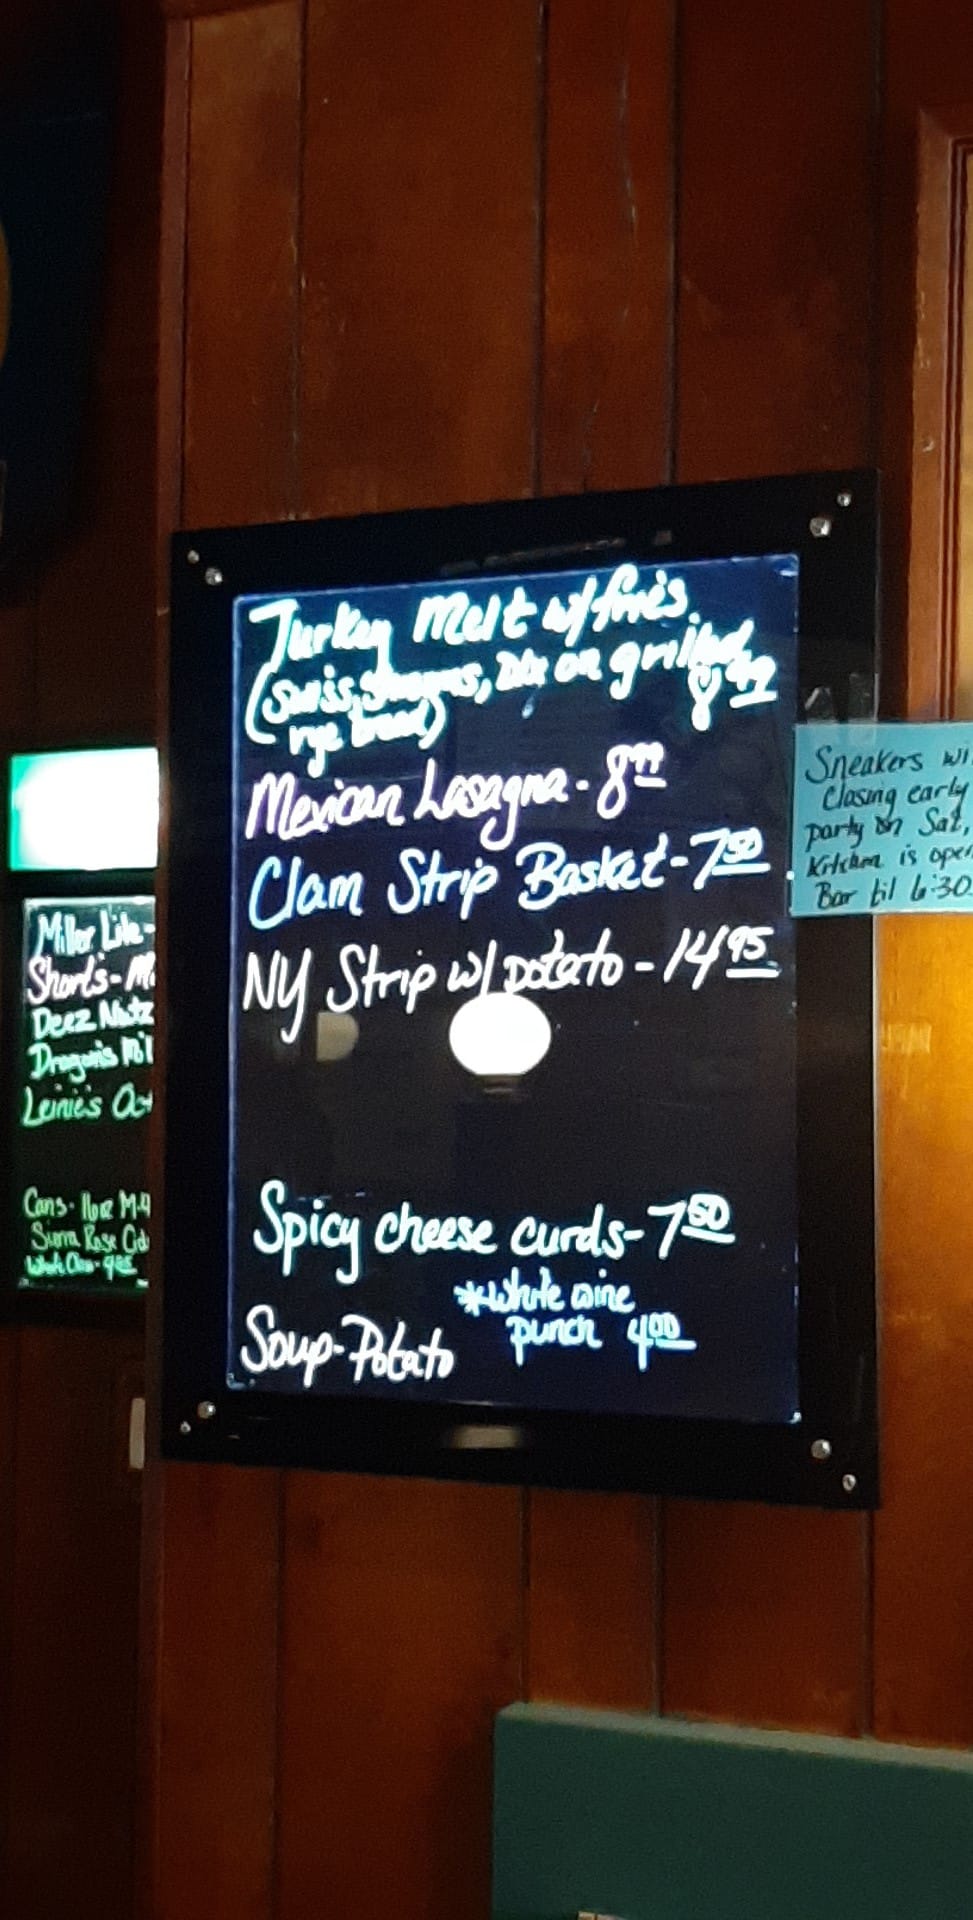 Turkey Melt w/fries
(swiss, on grilled
rye bread) 8.99
Mexican Lasagna - 8.99
Clam Strip Basket - 7.50
NY Strip w/ potato - 14.95
Spicy cheese curds - 7.50
*White wine
punch 4.00
Soup - Potato
Sneakers wi
Closing early
party on Sat,
Kitchen is open
Bar til 6:30
Miller Lite -
Short's - M
Deez Nutz
Dragon's Mil
Leinie's Oct
Cans - 16oz M-4
Sierra Rose Cid
White Claw -